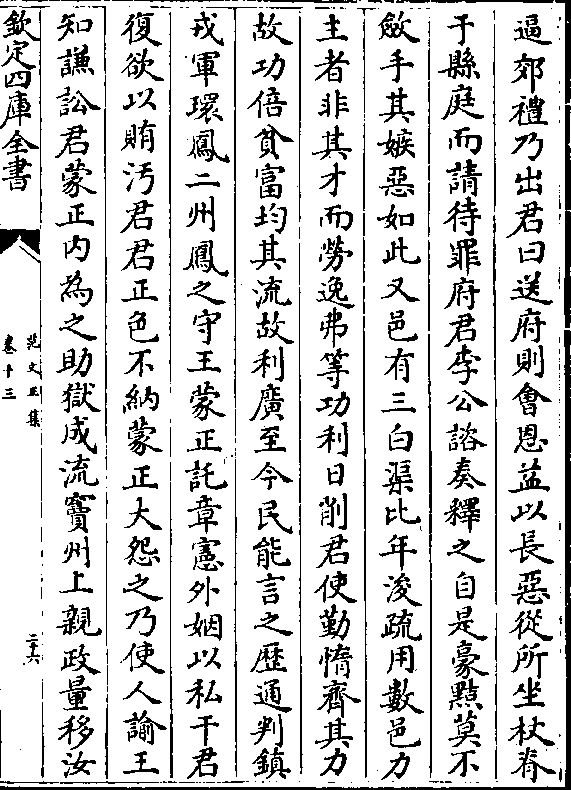 逼郊禮乃出君曰送府則會恩益以長惡從所坐杖脊
于縣庭而請待罪府君李公諮奏釋之自是豪黠莫不
斂手其嫉惡如此又邑有三白渠比年浚疏用數邑力
主者非其才而勞逸弗等功利日削君使勤惰齊其力
故功倍貧富均其流故利廣至今民能言之歷通判鎮
戎軍環鳳二州鳳之守王蒙正託章憲外姻以私干君
復欲以賄汚君君正色不納蒙正大怨之乃使人諭王
知謙訟君蒙正内為之助獄成流竇州上親政量移汝
欽定四庫全書
范文正集
卷十三
二十六